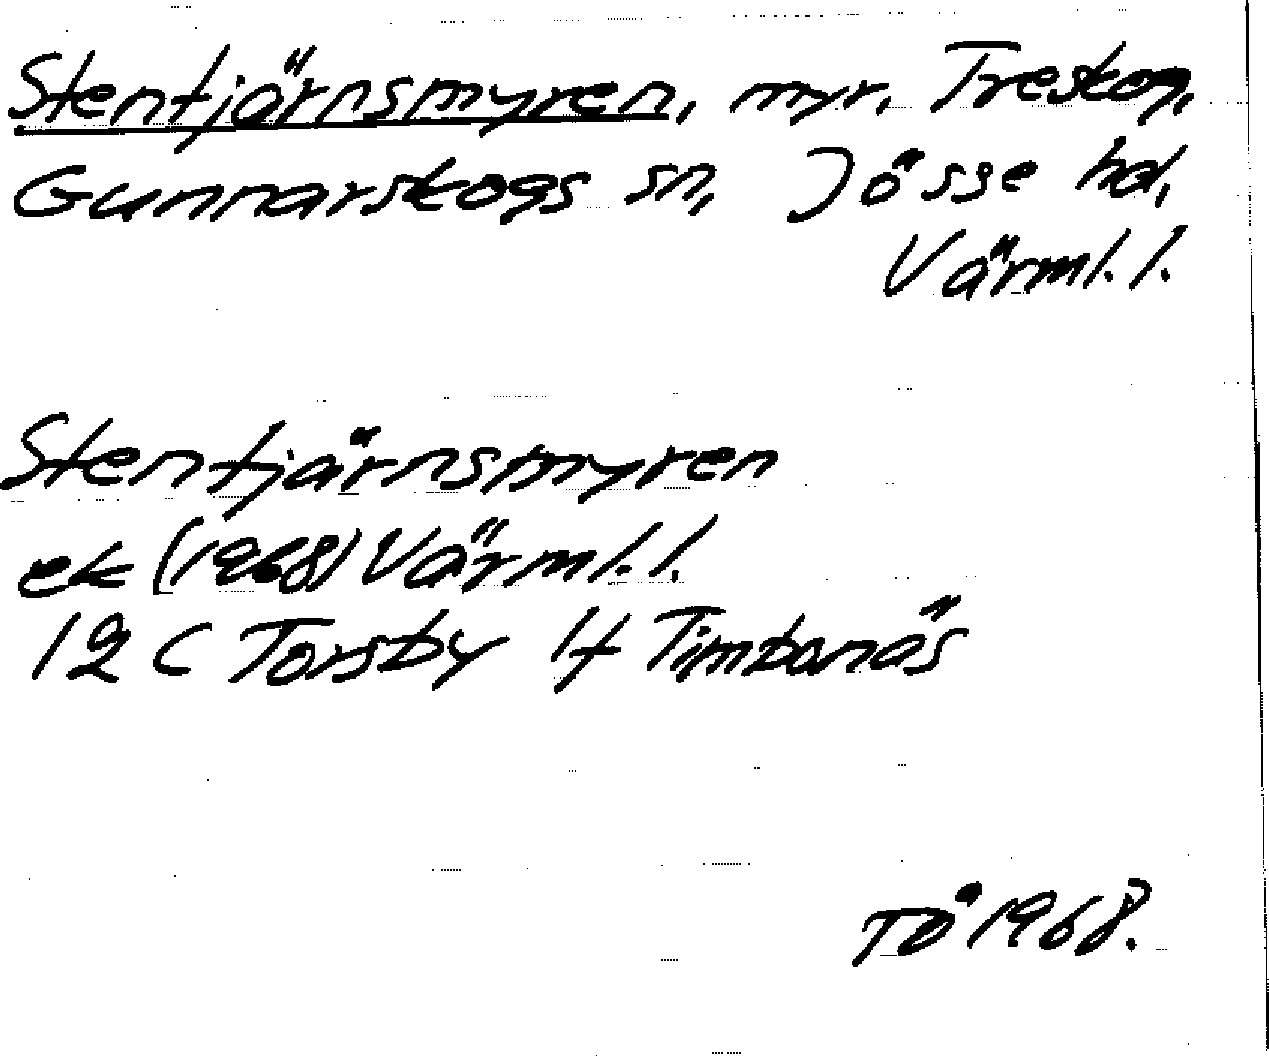 Stentjärnsmyren, myr. Treskog,
Gunnarskogs sn, Jösse hd,
Värml. l.
Stentjärnsmyren
ek (1968) Värml. l.
12 C Torsby 1f Timbonäs
TÖ 1968.